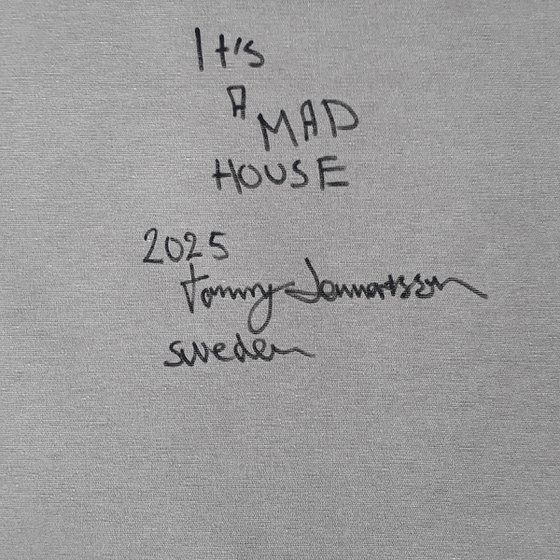 It's
A
MAD
HOUSE
2025
Tommy Lennartsson
sweden